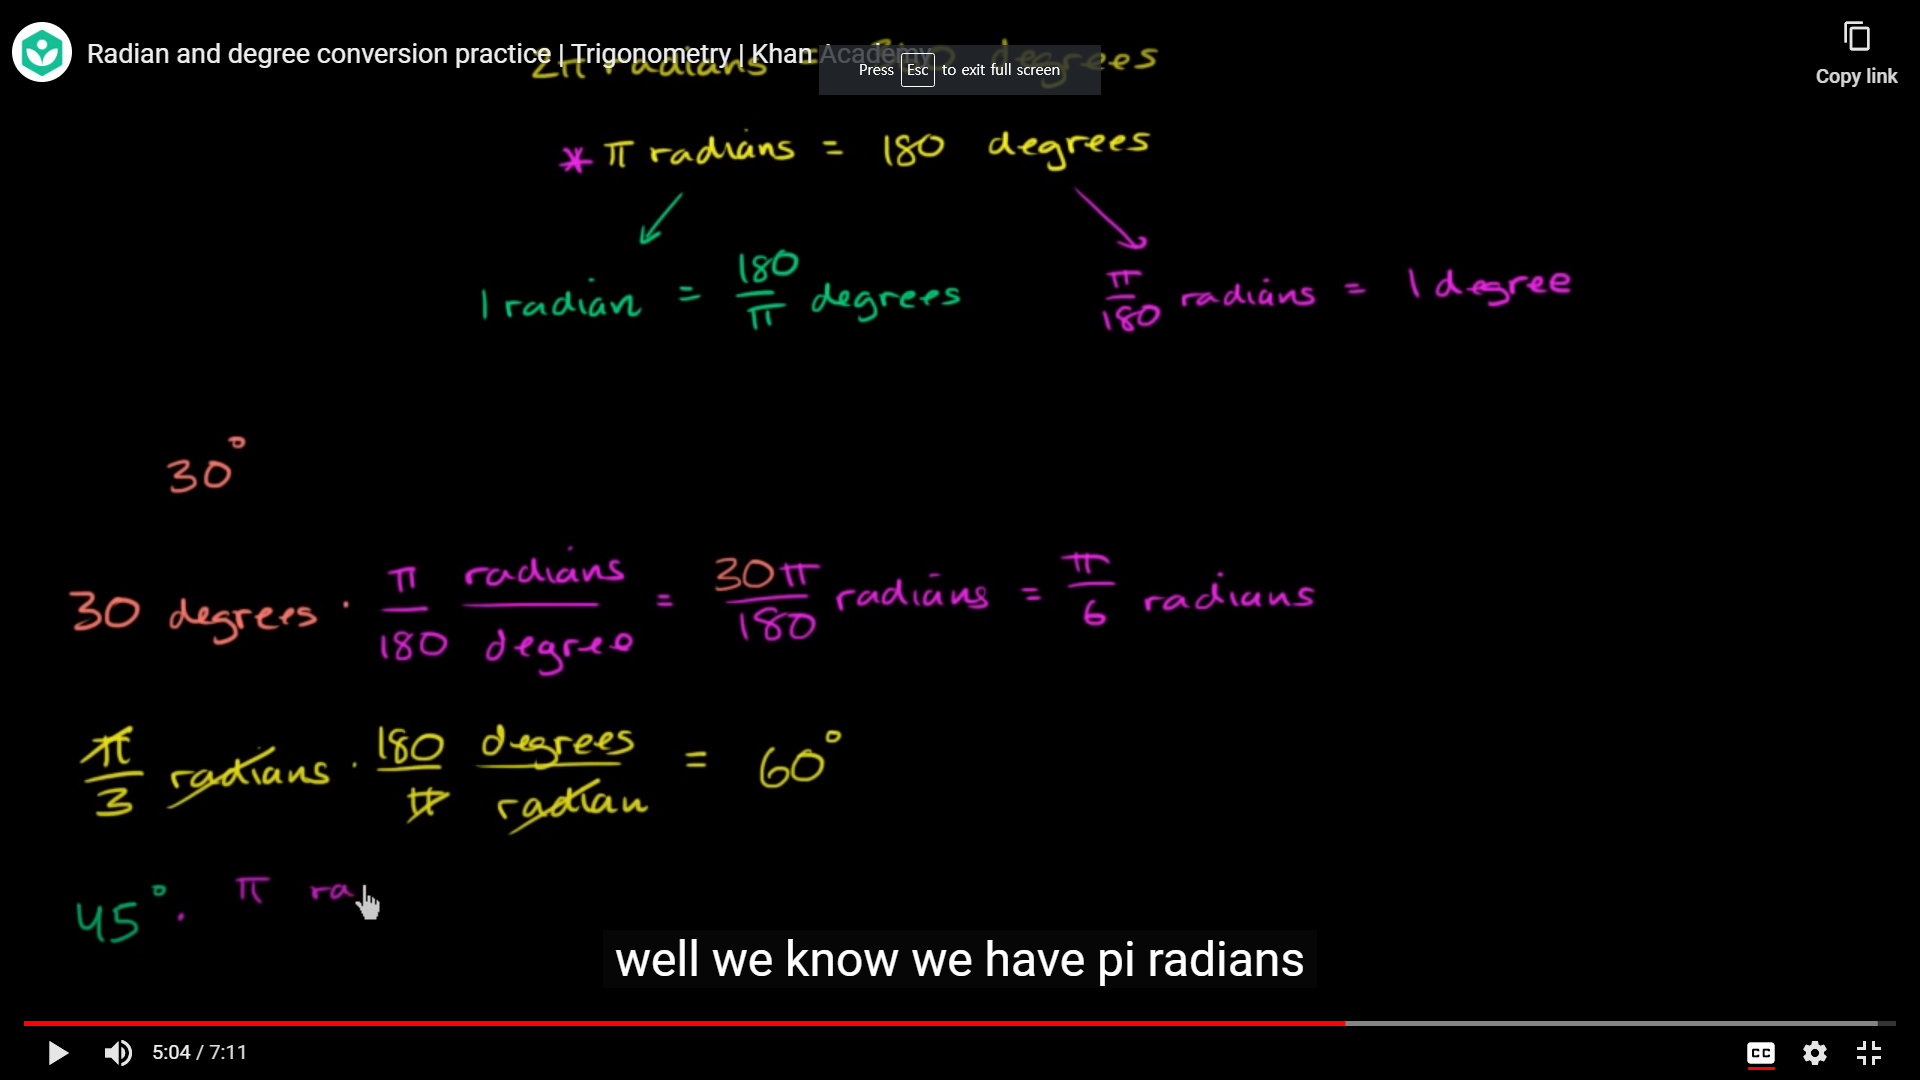 Radian and degree conversion practice | Trigonometry | Khan Academy
Copy link
2π radians = degrees
Press Esc to exit full screen
* π radians = 180 degrees
1 radian = 180/π degrees
π/180 radians = 1 degree
30°
30 degrees · π/180 radians/degree = 30π/180 radians = π/6 radians
π/3 radians · 180/π degrees/radian = 60°
45° · π ra
well we know we have pi radians
5:04 / 7:11
CC